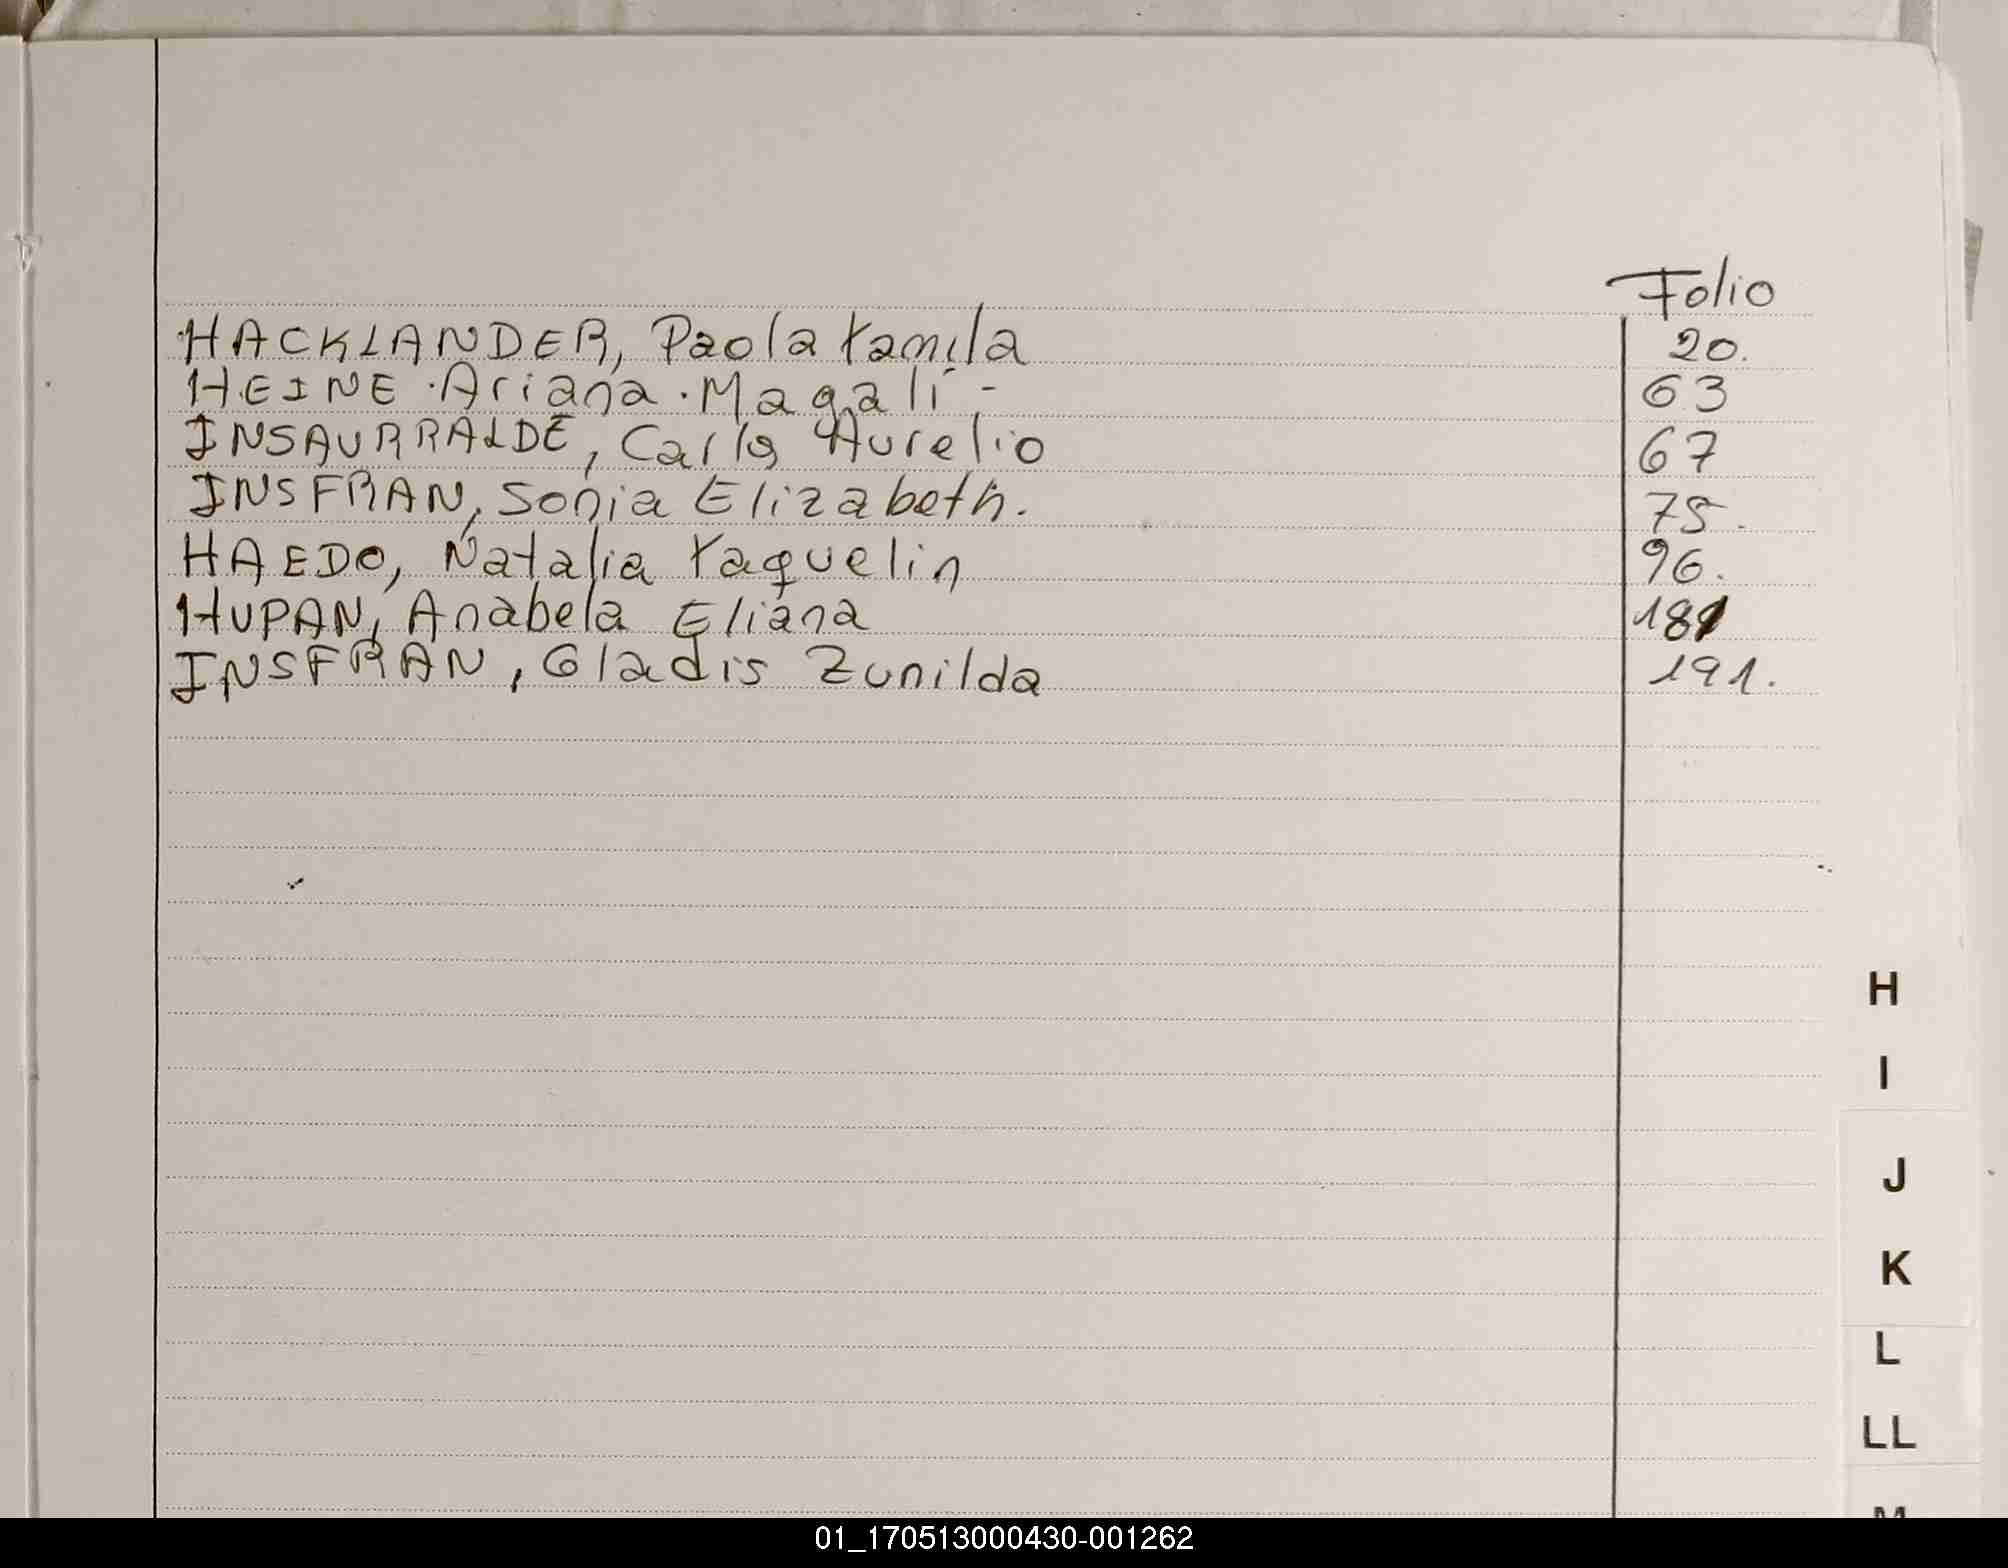 Folio
HACKLANDER, Paola Yamila 20.
HEINE Ariana Magalí - 63
INSAURRALDE, Carlos Aurelio 67
INSFRAN, Sonia Elizabeth. 75.
HAEDO, Natalia Yaquelin 96.
HUPAN, Anabela Eliana 181
INSFRAN, Gladis Zunilda 191.
H
I
J
K
L
LL
M
01_170513000430-001262